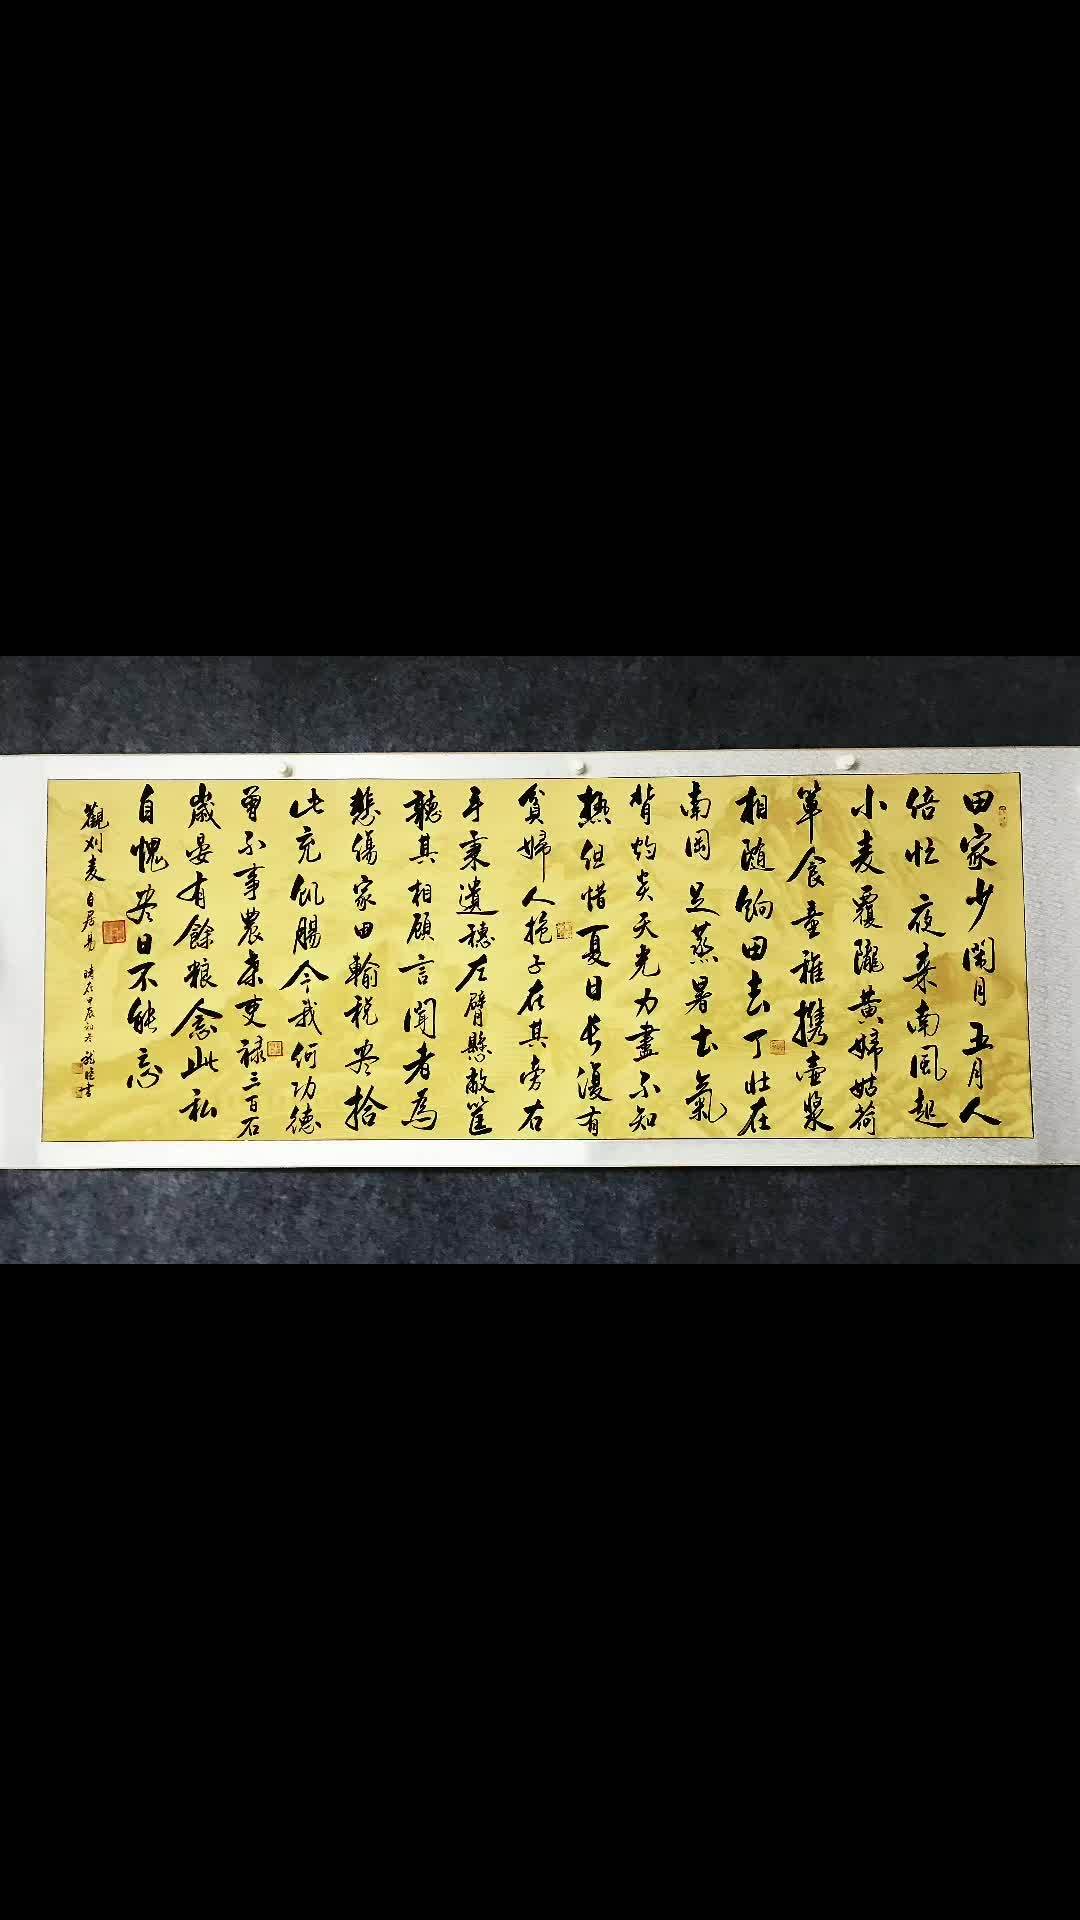 田家少閑月五月人
倍忙夜来南風起
小麦覆隴黄婦姑荷
箪食童稚携壶漿
相随餉田去丁壮在
南岡足蒸暑土氣
背灼炎天光力盡不知
热但惜夏日長復有
貧婦人抱子在其旁右
手秉遺穗左臂懸敝筐
聽其相顧言聞者為
悲傷家田輸税尽拾
此充飢腸今我何功德
曾不事農桒吏禄三百石
歲晏有餘粮念此私
自愧尽日不能忘
觀刈麦 白居易 時在甲辰初冬